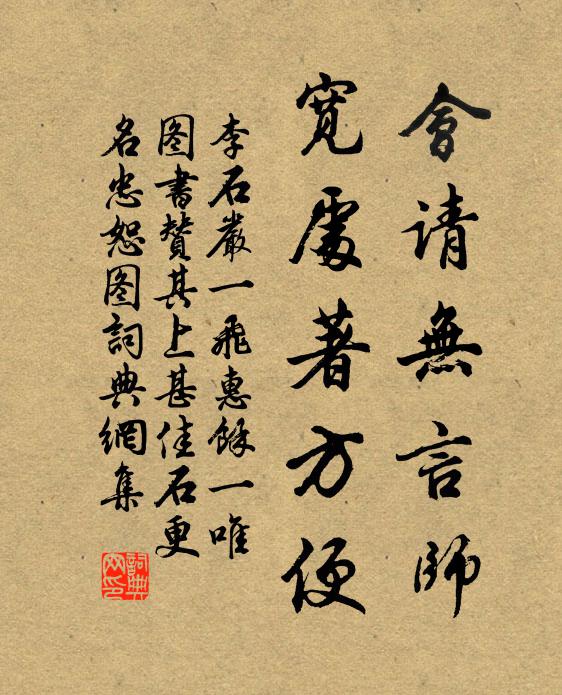 會请無言師
寛處著方便
李石巖一飛惠馀一唯
图書贊其上甚佳石更
名忠恕图詞典網集
詞典网印